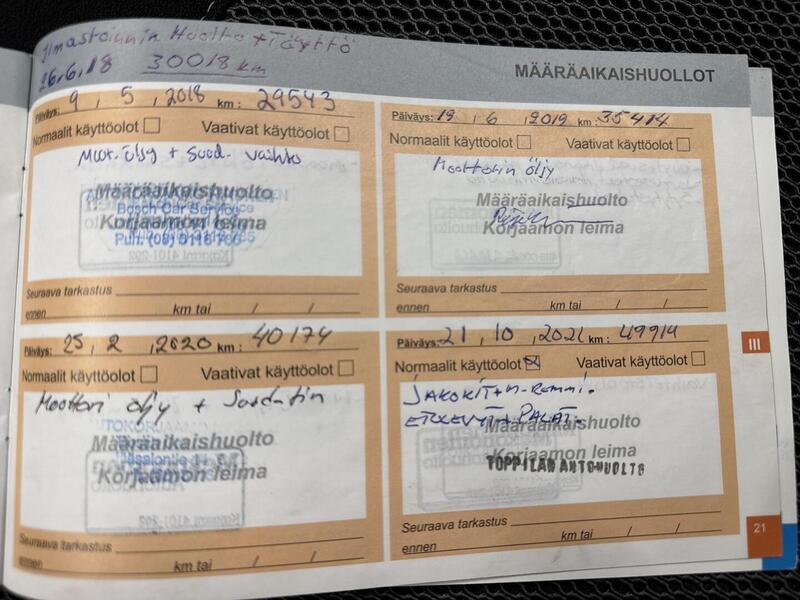 Ilmastoinnin Huolto + Täyttö
26.6.18 30018 km
MÄÄRÄAIKAISHUOLLOT
Päiväys: 9 , 5 , 2018 km: 29543
Normaalit käyttöolot Vaativat käyttöolot
Moot. öljy + Suod. vaihto
Määräaikaishuolto
Bosch Car Service
Korjaamon leima
Puh. (08)
Seuraava tarkastus
ennen km tai / /
Päiväys: 19 , 6 , 2019 km: 35414
Normaalit käyttöolot Vaativat käyttöolot
Moottorin öljy
Määräaikaishuolto
Korjaamon leima
Seuraava tarkastus
ennen km tai / /
Päiväys: 25 , 2 , 2020 km: 40174
Normaalit käyttöolot Vaativat käyttöolot
Moottori öljy + Suodatin
Määräaikaishuolto
Korjaamon leima
Seuraava tarkastus
ennen km tai / /
Päiväys: 21 , 10 , km: 49914
Normaalit käyttöolot Vaativat käyttöolot
JAKOKIT+M-REMMI.
+ PALAT.
Määräaikaishuolto
Korjaamon leima
TOPPILAN AUTOHUOLTO
Seuraava tarkastus
ennen km tai / /
III
21